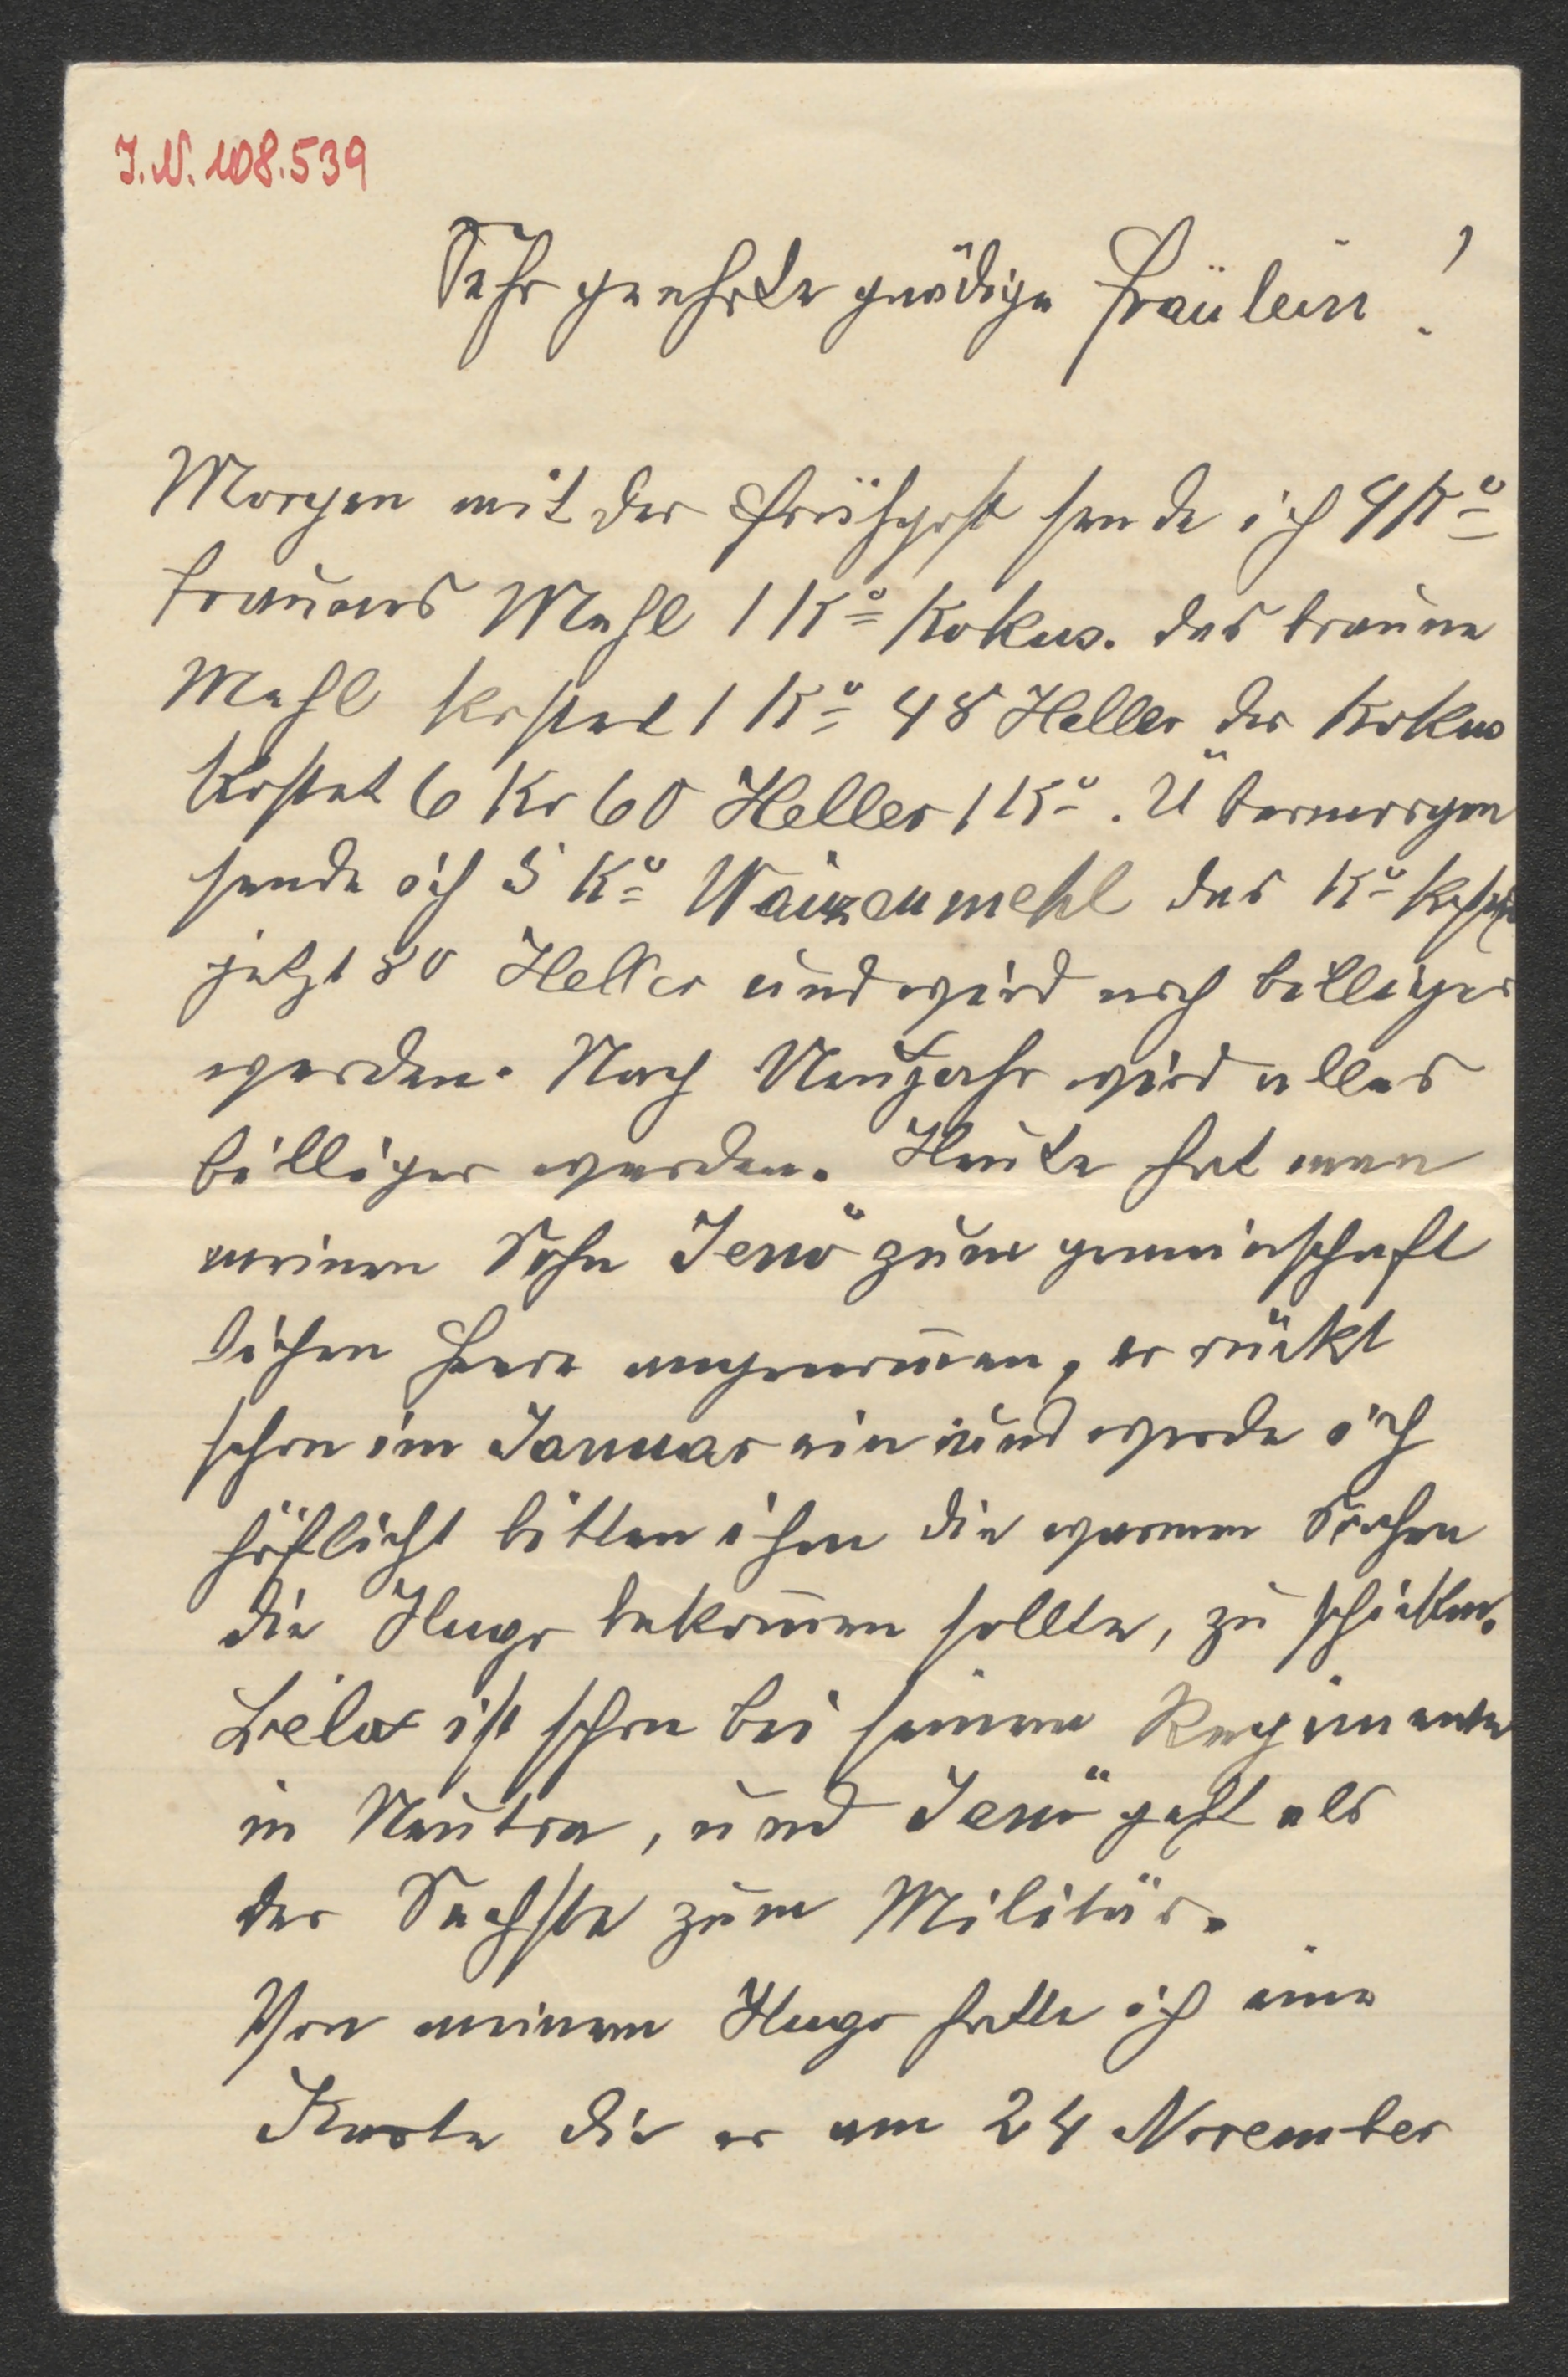 I.N. 108.539
Sehr geehrte gnädige Fräulein!
Morgen mit der Frühpost sende ich 4 Ko
braunes Mehl 1 Ko Kokus. das braune
Mehl kostet 1 Ko 48 Heller der Kokus
kostet 6 Kr 60 Heller 1 Ko. Übermorgen
sende ich 5 Ko Waizenmehl das Ko kostet
jetzt 80 Heller und wird noch billiger
werden. Nach Neujahr wird alles
billiger werden. Heute hat man
meinen Sohn Jenö zum gemeinschaft
lichen Heere angenom̅en, er rückt
schon im Januar ein und werde ich
höflichst bitten ihm die warmen Sachen
die Hugo bekom̅en sollte, zu schicken.
Béla ist schon bei seinem Regimente
in Neutra, und Jenö geht als
der Sechste zum Militär.
Von meinem Hugo hatte ich eine
Karte die er am 24 November